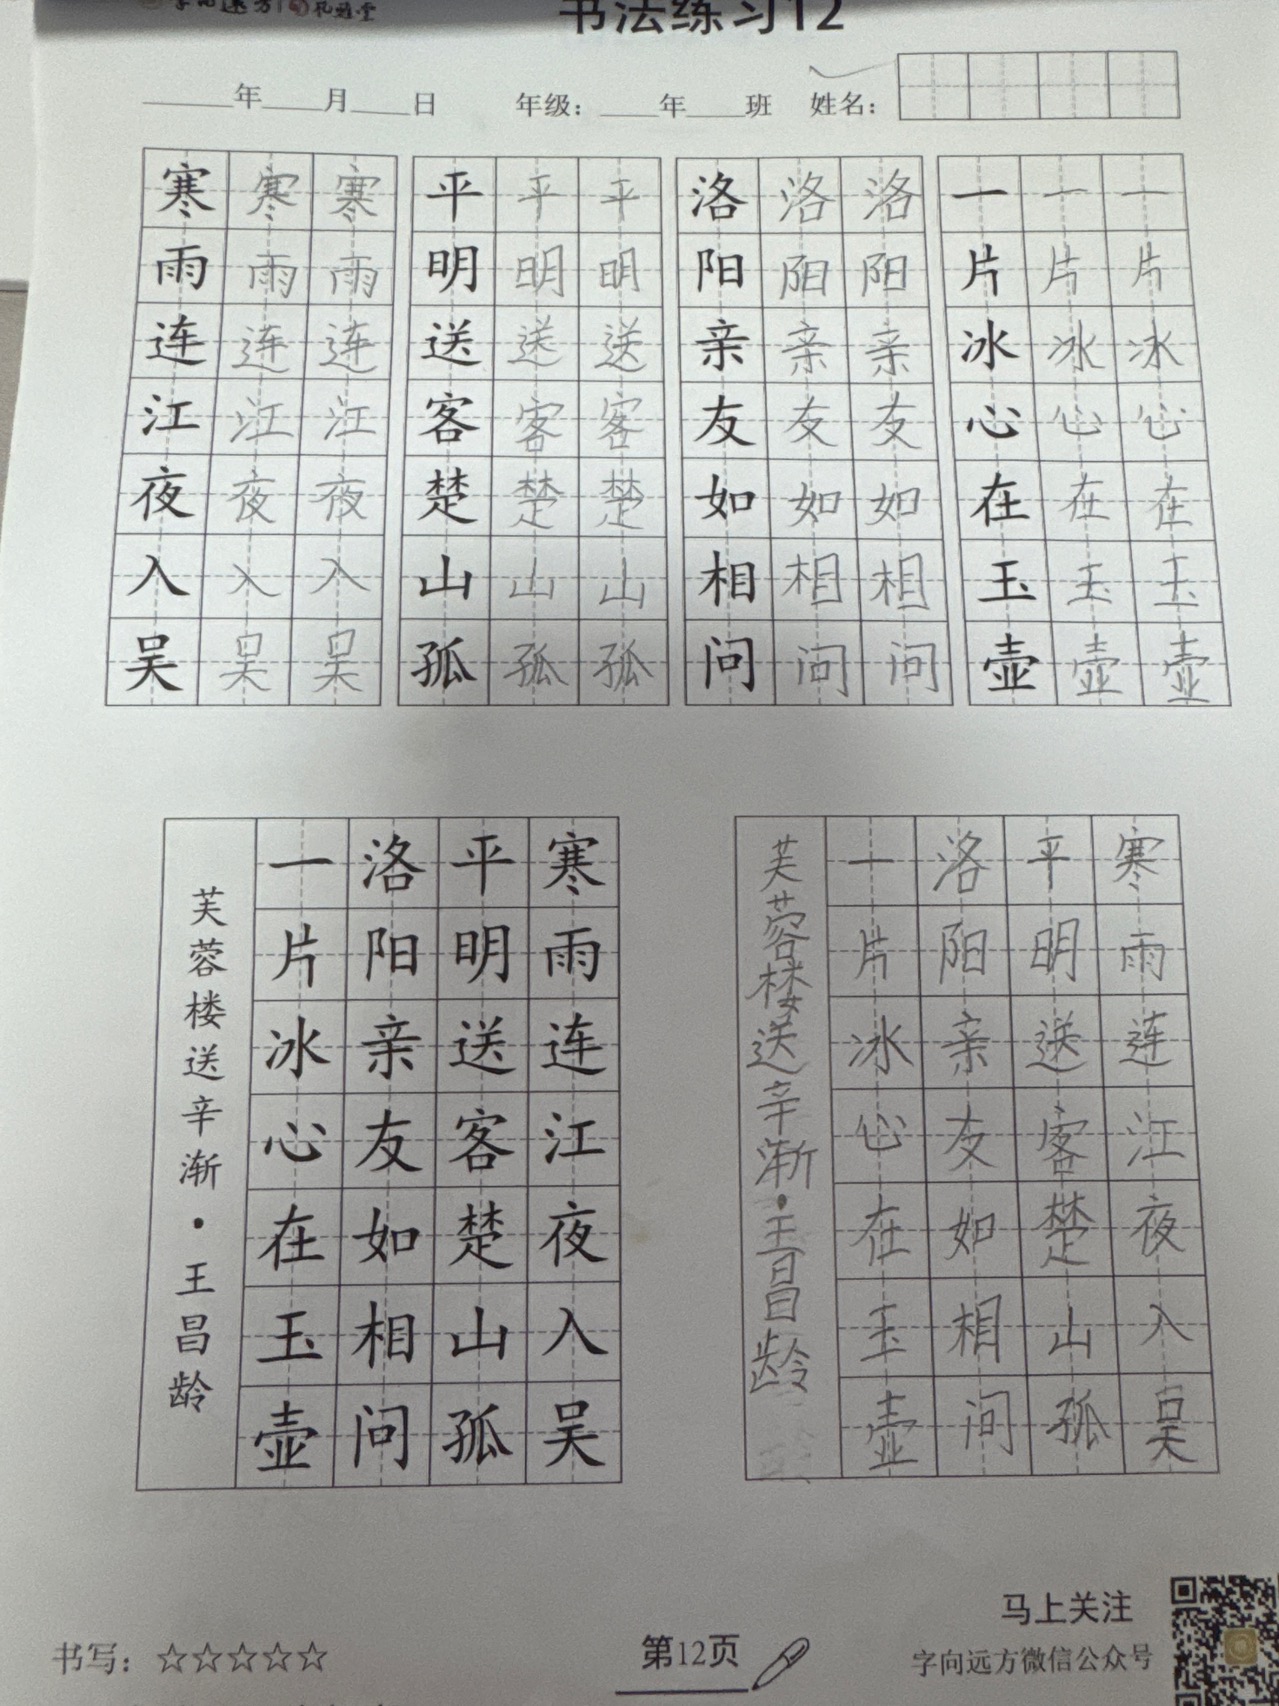 书法练习12
年 月 日 年级： 年 班 姓名：
寒寒寒 平平平 洛洛洛 一一一
雨雨雨 明明明 阳阳阳 片片片
连连连 送送送 亲亲亲 冰冰冰
江江江 客客客 友友友 心心心
夜夜夜 楚楚楚 如如如 在在在
入入入 山山山 相相相 玉玉玉
吴吴吴 孤孤孤 问问问 壶壶壶
寒雨连江夜入吴
平明送客楚山孤
洛阳亲友如相问
一片冰心在玉壶
芙蓉楼送辛渐·王昌龄
寒雨连江夜入吴
平明送客楚山孤
洛阳亲友如相问
一片冰心在玉壶
芙蓉楼送辛渐·王昌龄
马上关注
书写：☆☆☆☆☆
第12页
字向远方微信公众号